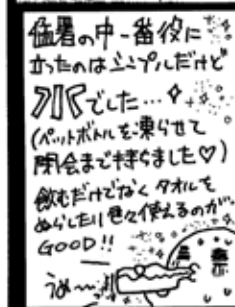 猛暑の中一番役に
立ったのはシンプルだけど
水でした…
(ペットボトルを凍らせて
閉会まで持ちました♡)
飲むだけでなくタオルを
ぬらしたり色々使えるのが
GOOD!!
うめ〜